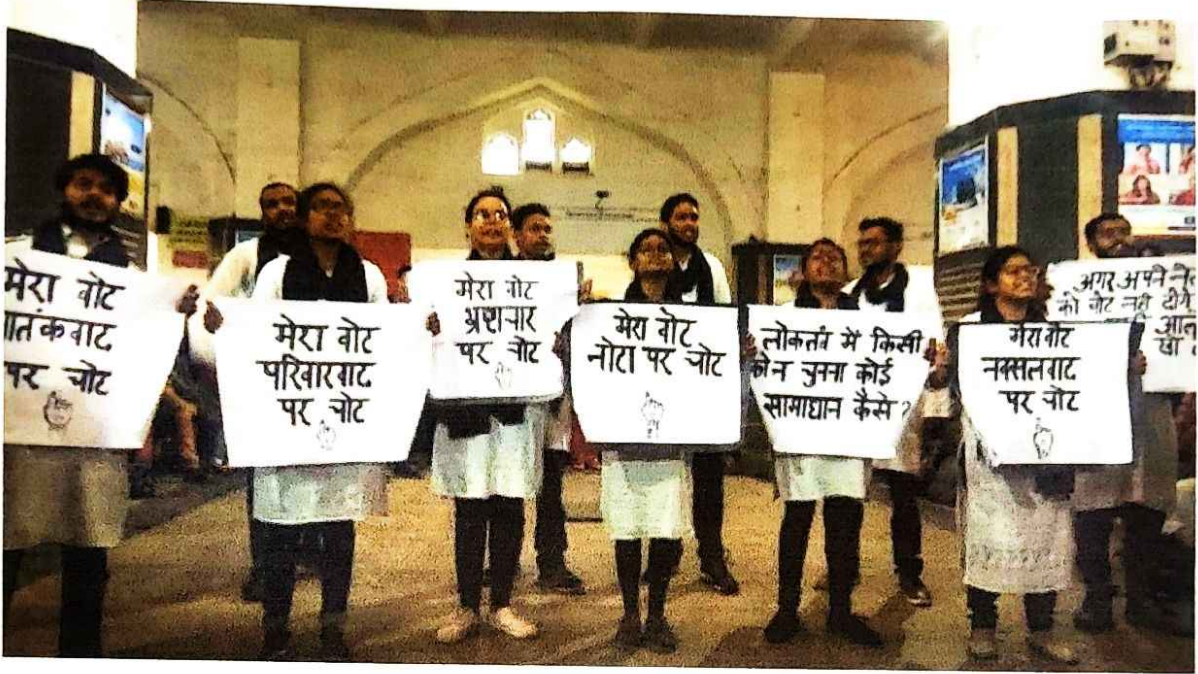 मेरा वोट
आतंकवाद
पर चोट
मेरा वोट
परिवारवाद
पर चोट
मेरा वोट
भ्रष्टाचार
पर चोट
मेरा वोट
नोटा पर चोट
लोकतंत्र में किसी
को न चुनना कोई
सामाधान कैसे ?
मेरा वोट
नक्सलवाद
पर चोट
अगर अपने
को वोट नहीं दोगे